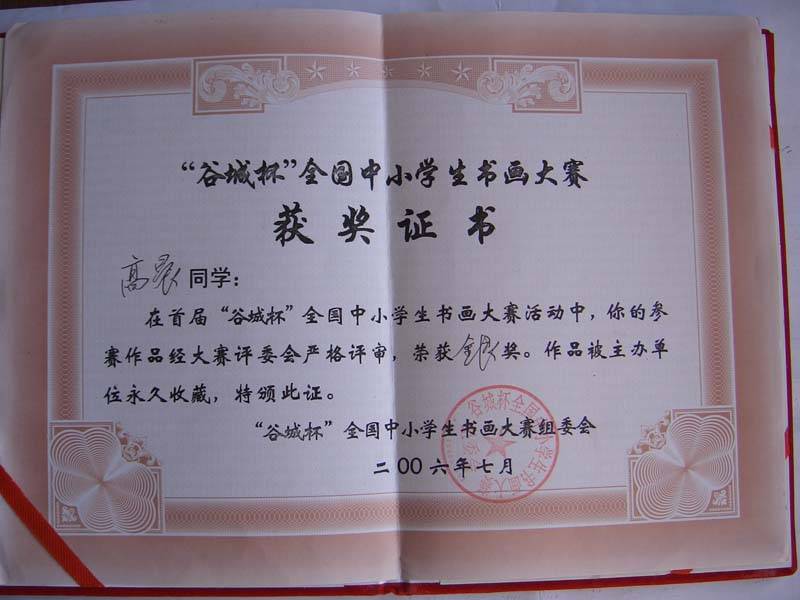 “谷城杯”全国中小学生书画大赛
获奖证书
高晨 同学：
在首届“谷城杯”全国中小学生书画大赛活动中，你的参
赛作品经大赛评委会严格评审，荣获 银 奖。作品被主办单
位永久收藏，特颁此证。
“谷城杯”全国中小学生书画大赛组委会
二〇〇六年七月